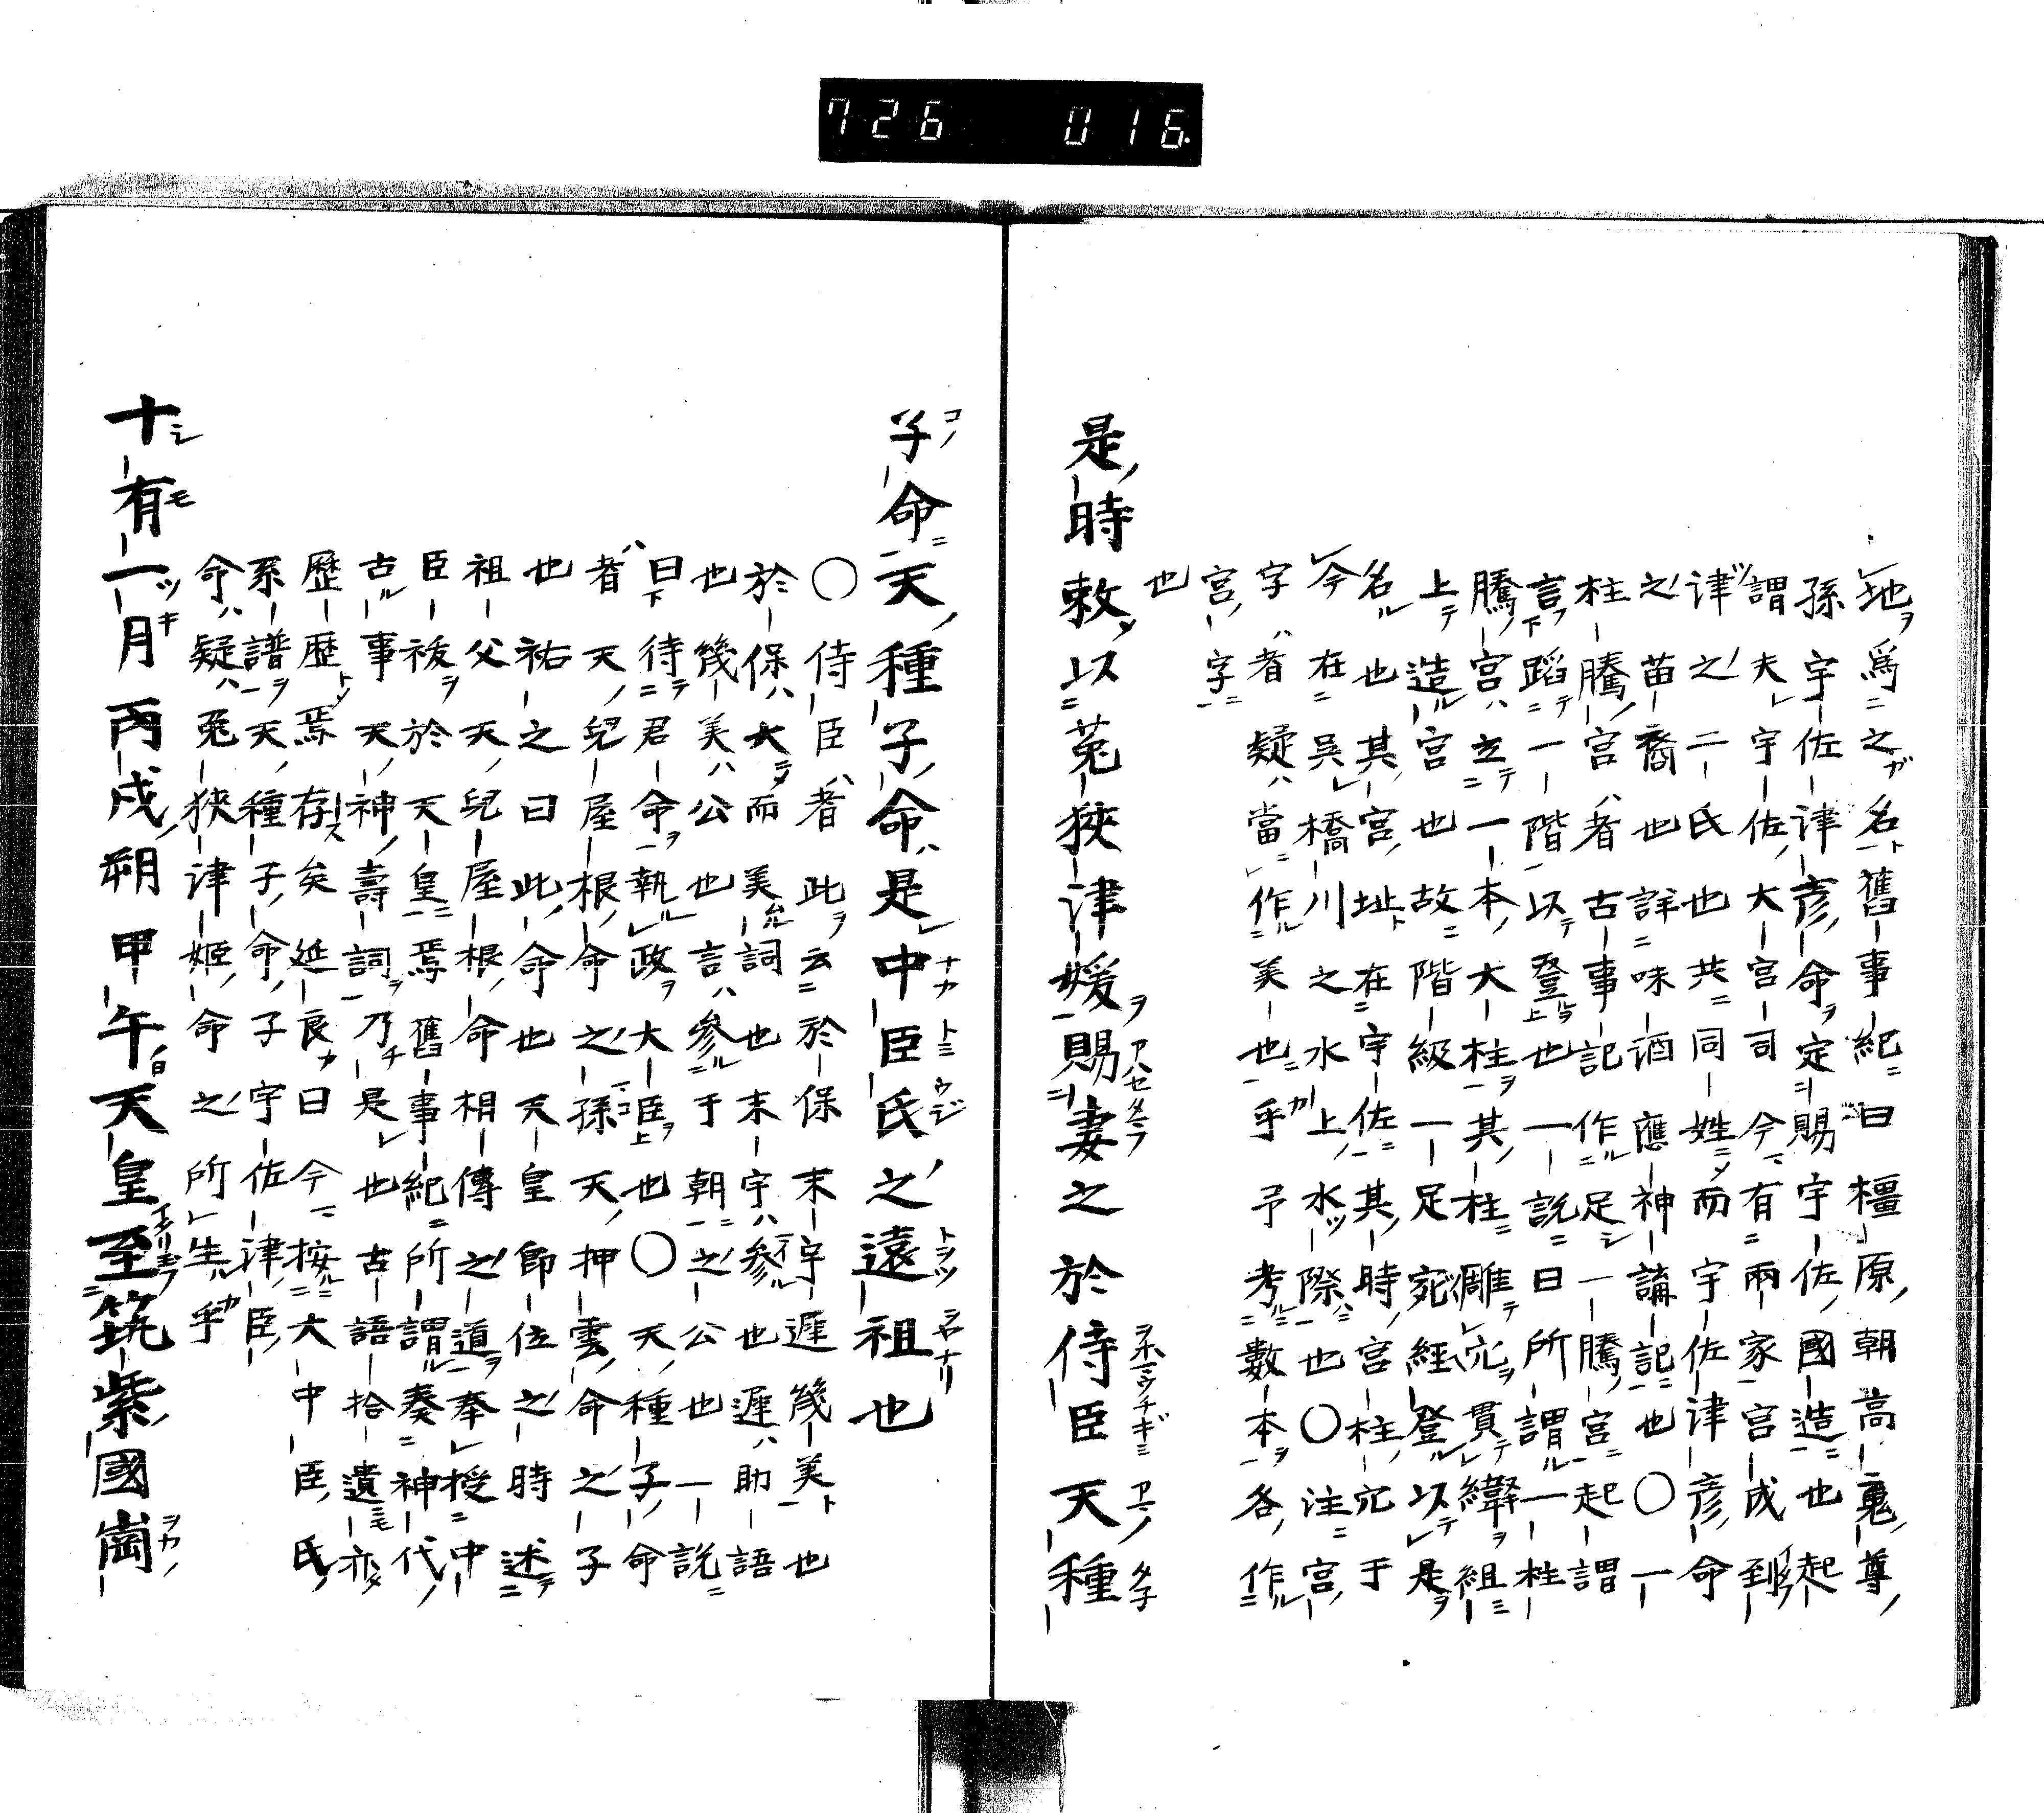 726 016
地爲之名舊事紀曰橿原朝高䰟尊
孫宇佐津彦命定賜宇佐國造也起
謂夫宇佐大宮司今有兩家宮成到
津之二氏也共同姓而宇佐津彦命
之苗裔也詳味酒應神講記也〇一
柱騰宮者古事記作足一騰宮起謂
言蹈一階以登也一說曰所謂一柱
騰宮立一本大柱其柱雕穴貫繂組
上造宮也故階級一足宛經登以是
名也其宮址在宇佐其時宮柱穴于
今在吳橋川之水上水際也〇注宮
字者疑當作美也乎予考數本各作
宮字
也
是時敕以菟狹津媛賜妻之於侍臣天種
子命天種子命是中臣氏之遠祖也
〇侍臣者此云於保末宇遲幾美也
於保大而美詞也末宇參也遲助語
也幾美公也言參于朝之公也一說
曰待君命執政大臣也〇天種子命
者天兒屋根命之孫天押雲命之子
也祐之曰此命也天皇卽位之時述
祖父天兒屋根命相傳之道奉授中
臣祓於天皇焉舊事紀所謂奏神代
古事天神壽詞乃是也古語拾遺亦
歷歴焉存矣延良曰今按大中臣氏
系譜天種子命子宇佐津臣
命疑兎狹津姬命之所生乎
十有一月丙戌朔甲午天皇至筑紫國崗